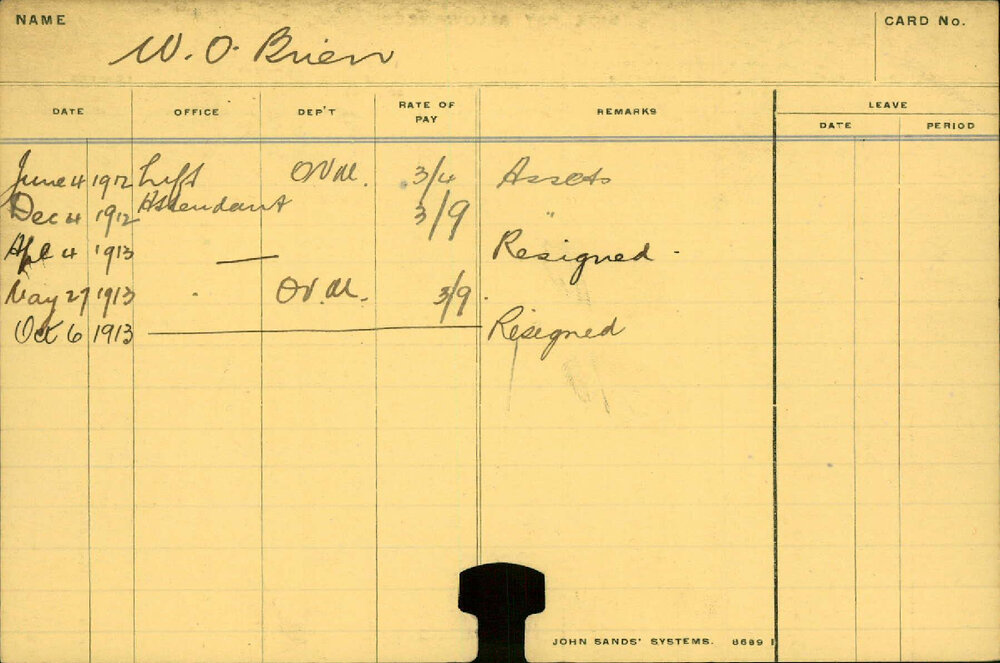 NAME
W. O'Brien
CARD No.
DATE OFFICE DEP'T RATE OF PAY REMARKS LEAVE
DATE PERIOD
June 4 1912 Lift O.V.M. 3/4 Assets
Dec 4 1912 Attendant 3/9 "
Apl 4 1913 — Resigned -
May 27 1913 . O.V.M. 3/9.
Oct 6 1913 — Resigned
JOHN SANDS' SYSTEMS. 8689